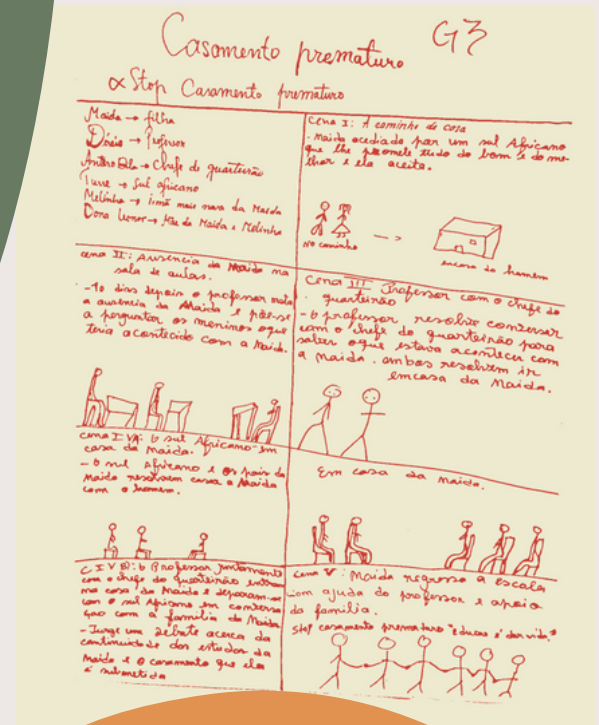 Casamento prematuro G3
∝ Stop Casamento prematuro
Maida → filha
Dércio → Professor
António → Chefe de quarteirão
→ Sul africano
Melinha → irmã mais nova da Maida
Dona Leonor → Mãe da Maida e Melinha
Cena I: A caminho de casa
- Maida acediada por um sul Africano
que lhe promete tudo do bom e do me-
lhor e ela aceita.
No caminho
encasa do homem
cena II: Ausencia da Maida na
sala de aulas.
- 10 dias depois o professor nota
a ausencia da Maida e põe-se
a perguntar os meninos oque
teria acontecido com a Maida.
Cena III Professor com o chefe do
quarteirão
- O professor resolve conversar
com o chefe do quarteirão para
saber oque estava acontecer com
a Maida. ambos resolvem ir
emcasa da Maida.
cena I VA: O sul Africano em
casa da Maida.
- O sul Africano e os pais da
Maida resolvem casar a Maida
com o homem.
Em casa da Maida.
C I V B: O Professor juntamente
com o chefe do quarteirão entram
na casa da Maida e deparam-se
com o sul Africano em conversa
ção com a familia da Maida
- Surge um debate acerca da
continuidade dos estudos da
Maida e o casamento que ela
é submetida
cena V: Maida regressa a escola
com ajuda do professor e apoio
da familia.
Stop casamento prematuro "educar é dar vida."